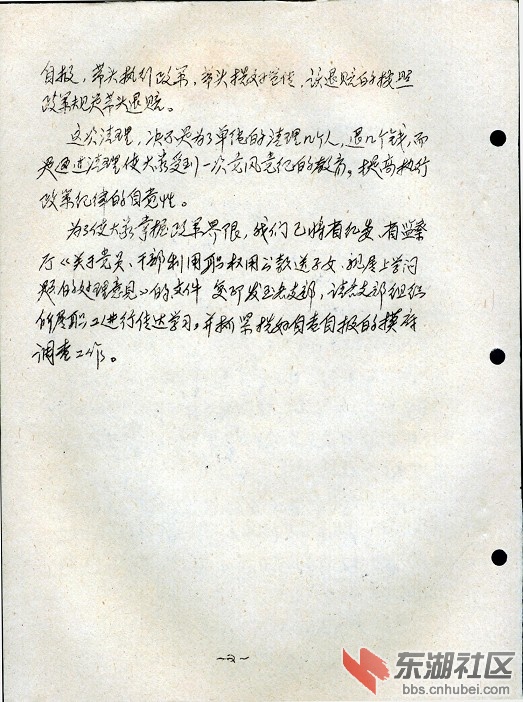 自报，带头执行政策，带头搞好宣传，该退赔的按照
政策规定带头退赔。
这次清理，决不是为了单纯的清理几个人，退几个钱，而
是通过清理使大家受到一次党风党纪的教育，提高执行
政策纪律的自觉性。
为了使大家掌握政策界限，我们已将省纪委、省监察
厅《关于党员、干部利用职权用公款送子女、亲属上学问
题的处理意见》的文件复印发至各支部，请各支部组织
所属职工进行传达学习，并抓紧搞好自查自报的摸底
调查工作。
~2~
东湖社区
bbs.cnhubei.com